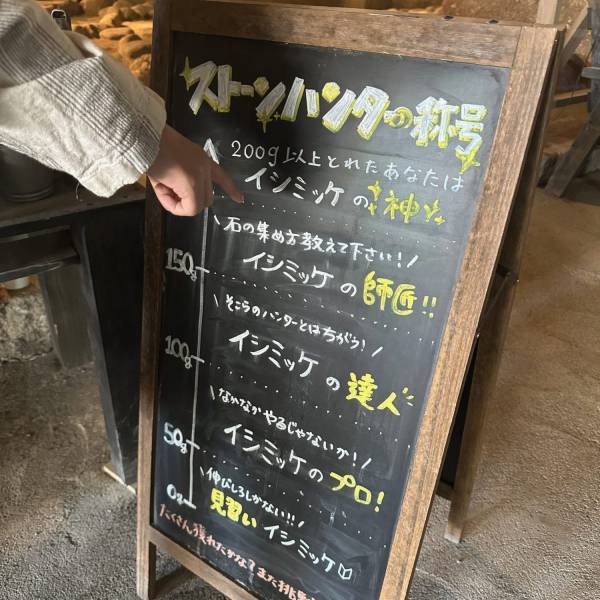 ストーンハンターの称号
200g以上とれたあなたは
イシミッケの神
石の集め方教えて下さい!
150g
イシミッケの師匠!!
そこらのハンターとはちがう!
100g
イシミッケの達人
なかなかやるじゃないか!
50g
イシミッケのプロ!
伸びしろしかない!!
0g
見習いイシミッケ
たくさん獲れたかな?また挑